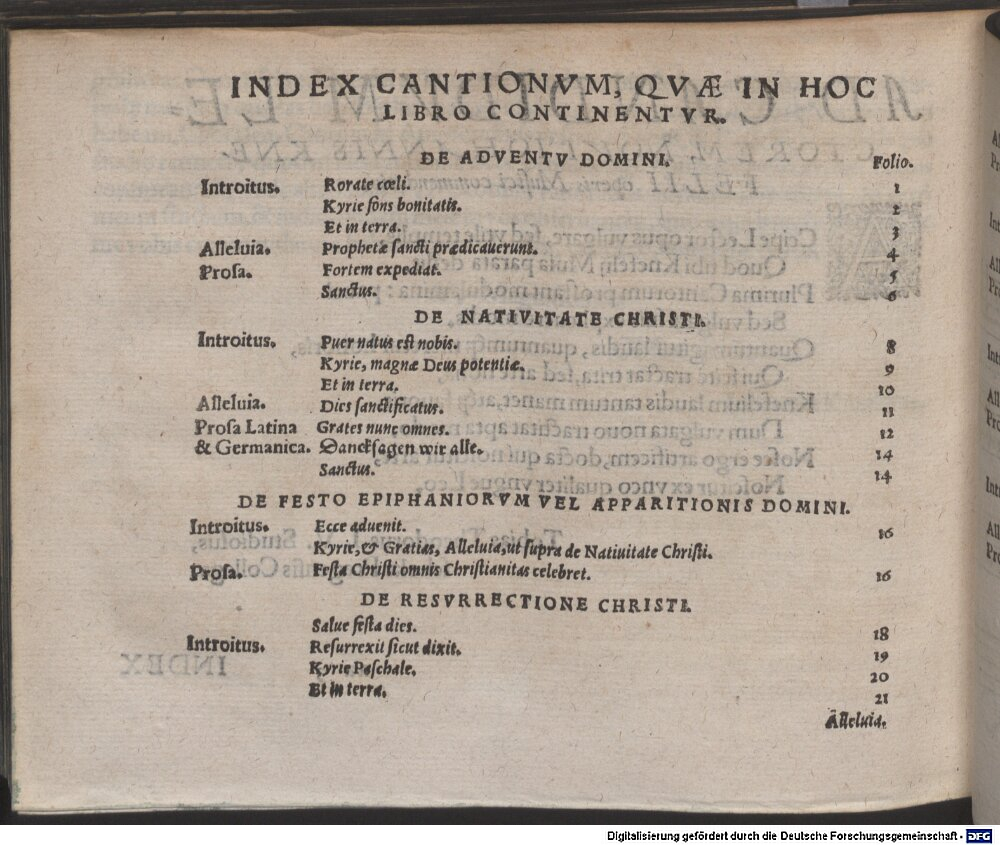 INDEX CANTIONVM, QVÆ IN HOC
LIBRO CONTINENTVR.
DE ADVENTV DOMINI. Folio.
Introitus. Rorate cœli. 1
Kyrie fons bonitatis. 2
Et in terra. 3
Alleluia. Prophetæ ſancti prædicauerunt. 4
Proſa. Fortem expediat. 5
Sanctus. 6
DE NATIVITATE CHRISTI.
Introitus. Puer natus eſt nobis. 8
Kyrie, magnæ Deus potentiæ. 9
Et in terra. 10
Alleluia. Dies ſanctificatus. 11
Proſa Latina Grates nunc omnes. 12
& Germanica. Danckſagen wir alle. 14
Sanctus. 14
DE FESTO EPIPHANIORVM VEL APPARITIONIS DOMINI.
Introitus. Ecce aduenit. 16
Kyrie, & Gratias, Alleluia, ut ſupra de Natiuitate Chriſti.
Proſa. Feſta Chriſti omnis Chriſtianitas celebret. 16
DE RESVRRECTIONE CHRISTI.
Salue feſta dies. 18
Introitus. Reſurrexit ſicut dixit. 19
Kyrie Paſchale. 20
Et in terra. 21
Alleluia.
Digitalisierung gefördert durch die Deutsche Forschungsgemeinschaft - DFG